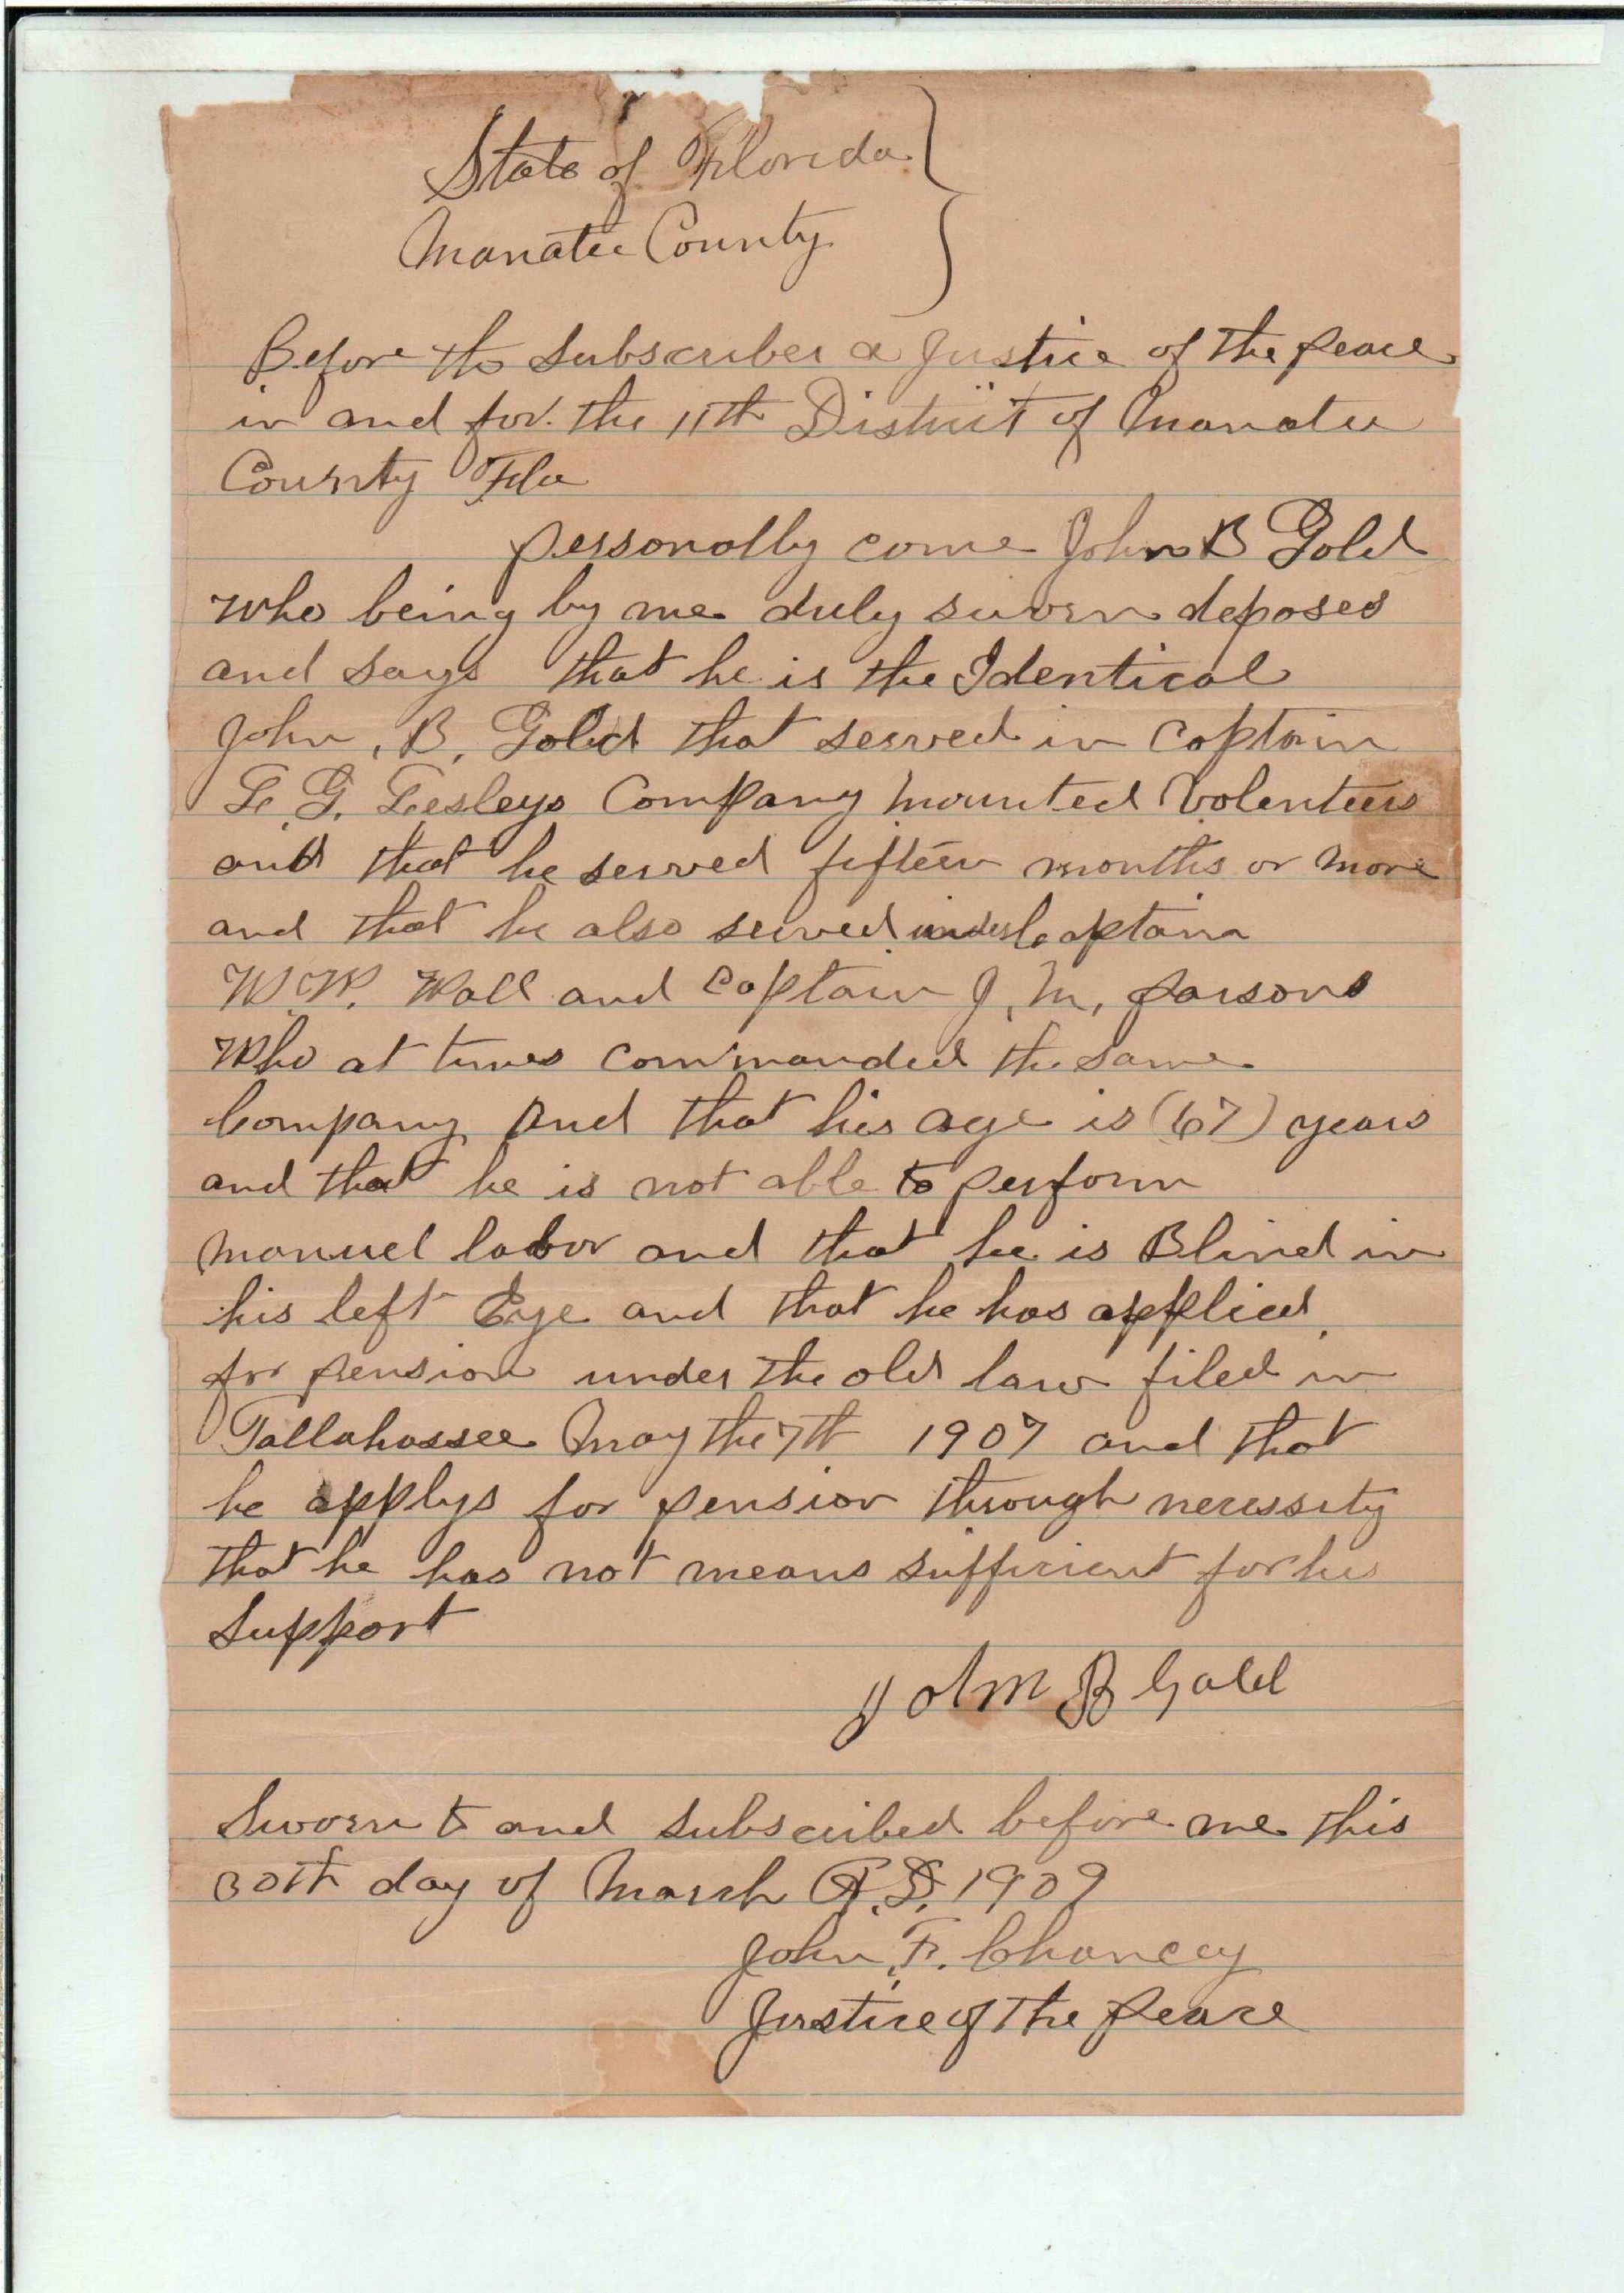 State of Florida
Manatee County
Before the Subscriber a Justice of the peace
in and for the 11th District of Manatee
County Fla
personally come John B Gold
who being by me duly sworn deposes
and says that he is the Identical
John, B, Gold that served in Captain
L. G. Lesleys Company Mounted Volenteers
and that he served fifteen months or more
and that he also served under Captain
W. W. Wall and Captain J, M, parsons
Who at times commanded the same
Company and that his age is (67) years
and that he is not able to perform
manuel labor and that he is Blind in
his left Eye and that he has applied
for pension under the old law filed in
Tallahassee May the 7th 1907 and that
he applys for pension through necessity
that he has not means sufficient for his
Support
John B Gold
Sworn to and subscribed before me this
30th day of March A.D. 1909
John, F. Chancey
Justice of the peace